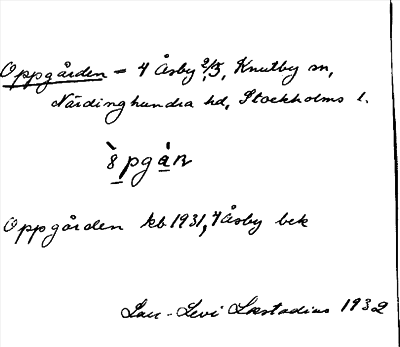 Oppgården = 4 Åsby 2/5, Knutby sn,
Närdinghundra hd, Stockholms l.
Oppgården kb 1931, 4 Åsby bek
Lars-Levi Læstadius 1932